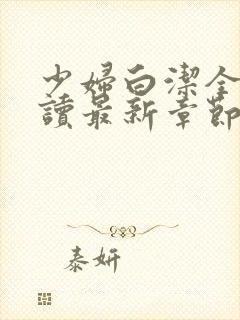 少婦白潔全
讀最新章節
泰妍